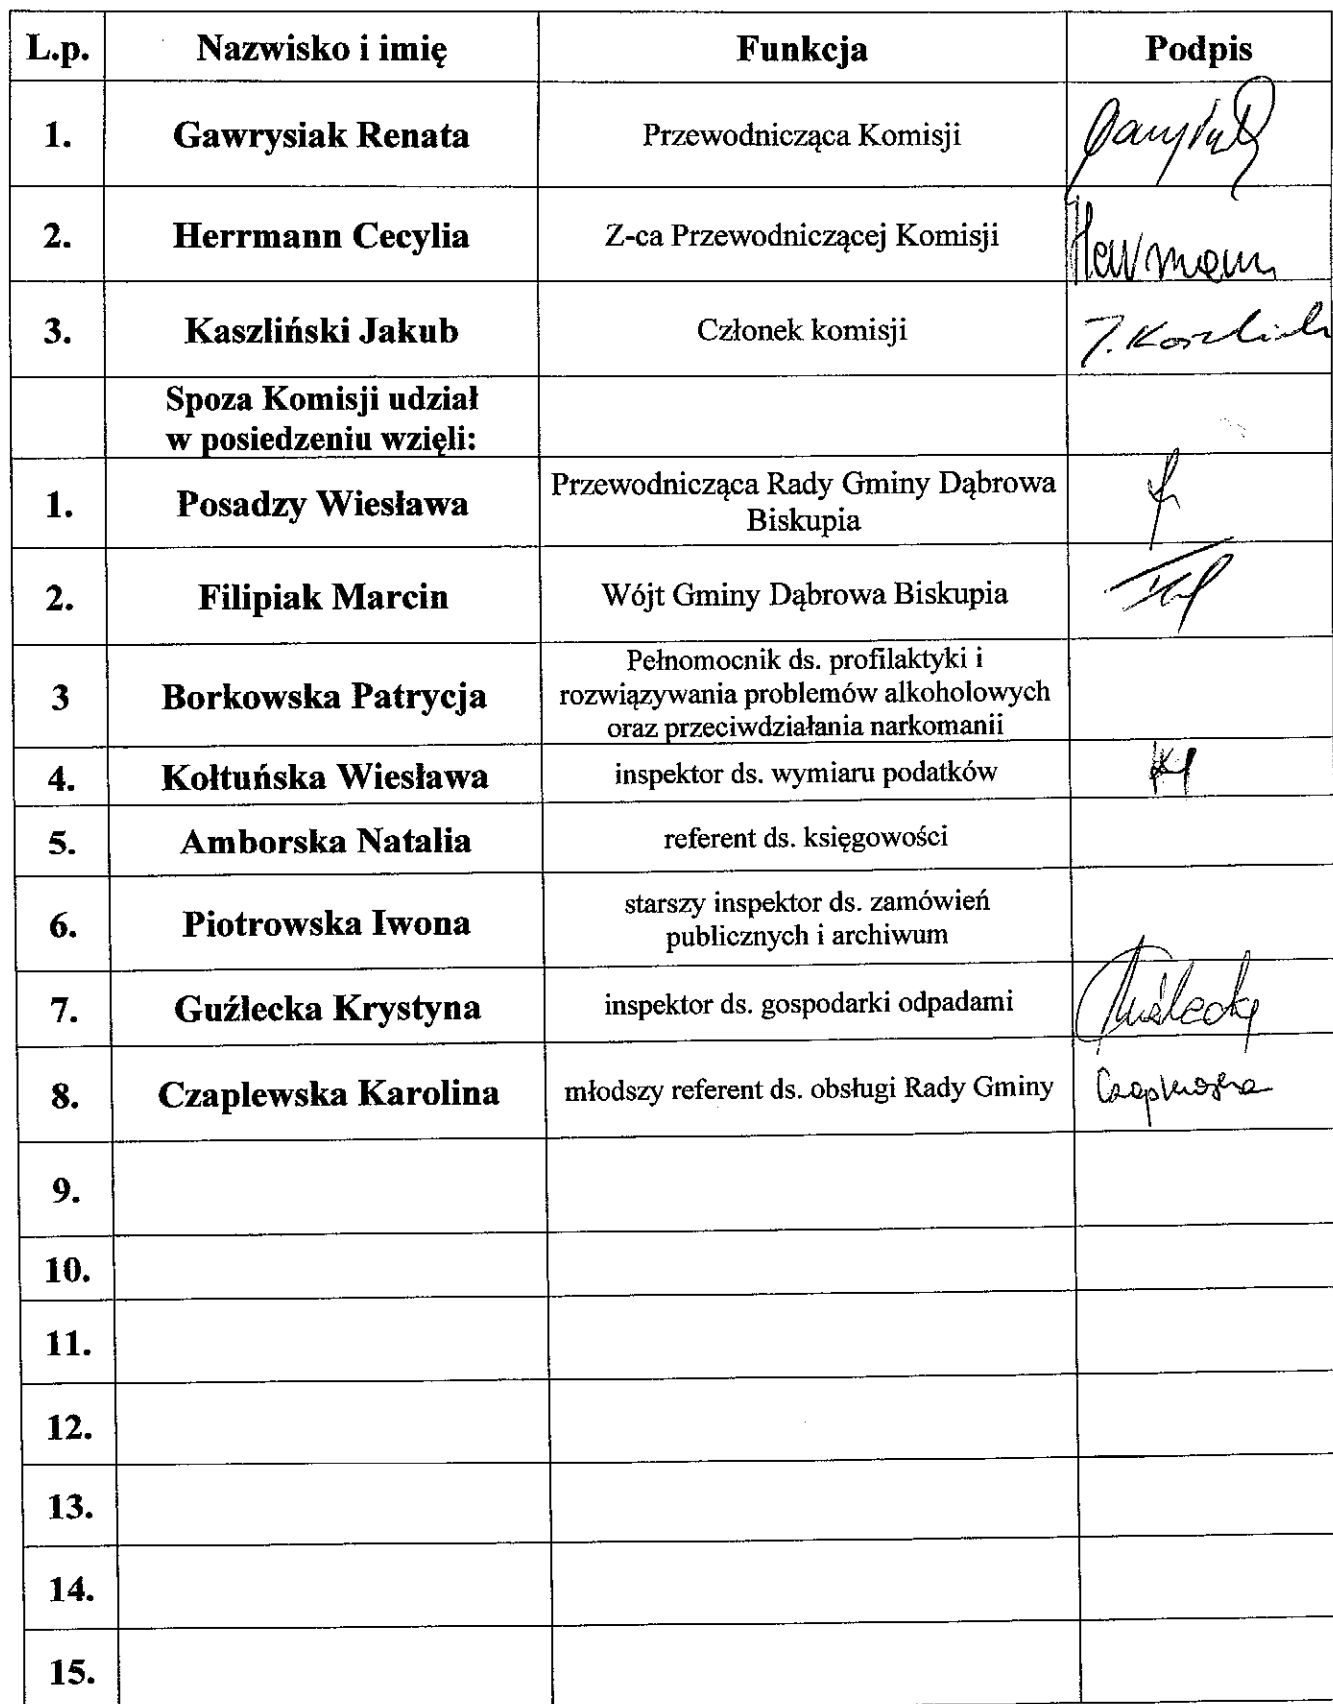 L.p. Nazwisko i imię Funkcja Podpis
1. Gawrysiak Renata Przewodnicząca Komisji
2. Herrmann Cecylia Z-ca Przewodniczącej Komisji Herrmann
3. Kaszliński Jakub Członek komisji J. Kaszliński
Spoza Komisji udział
w posiedzeniu wzięli:
1. Posadzy Wiesława Przewodnicząca Rady Gminy Dąbrowa
Biskupia
2. Filipiak Marcin Wójt Gminy Dąbrowa Biskupia
3 Borkowska Patrycja Pełnomocnik ds. profilaktyki i
rozwiązywania problemów alkoholowych
oraz przeciwdziałania narkomanii
4. Kołtuńska Wiesława inspektor ds. wymiaru podatków
5. Amborska Natalia referent ds. księgowości
6. Piotrowska Iwona starszy inspektor ds. zamówień
publicznych i archiwum
7. Guźlecka Krystyna inspektor ds. gospodarki odpadami Guźlecka
8. Czaplewska Karolina młodszy referent ds. obsługi Rady Gminy Czaplewska
9.
10.
11.
12.
13.
14.
15.